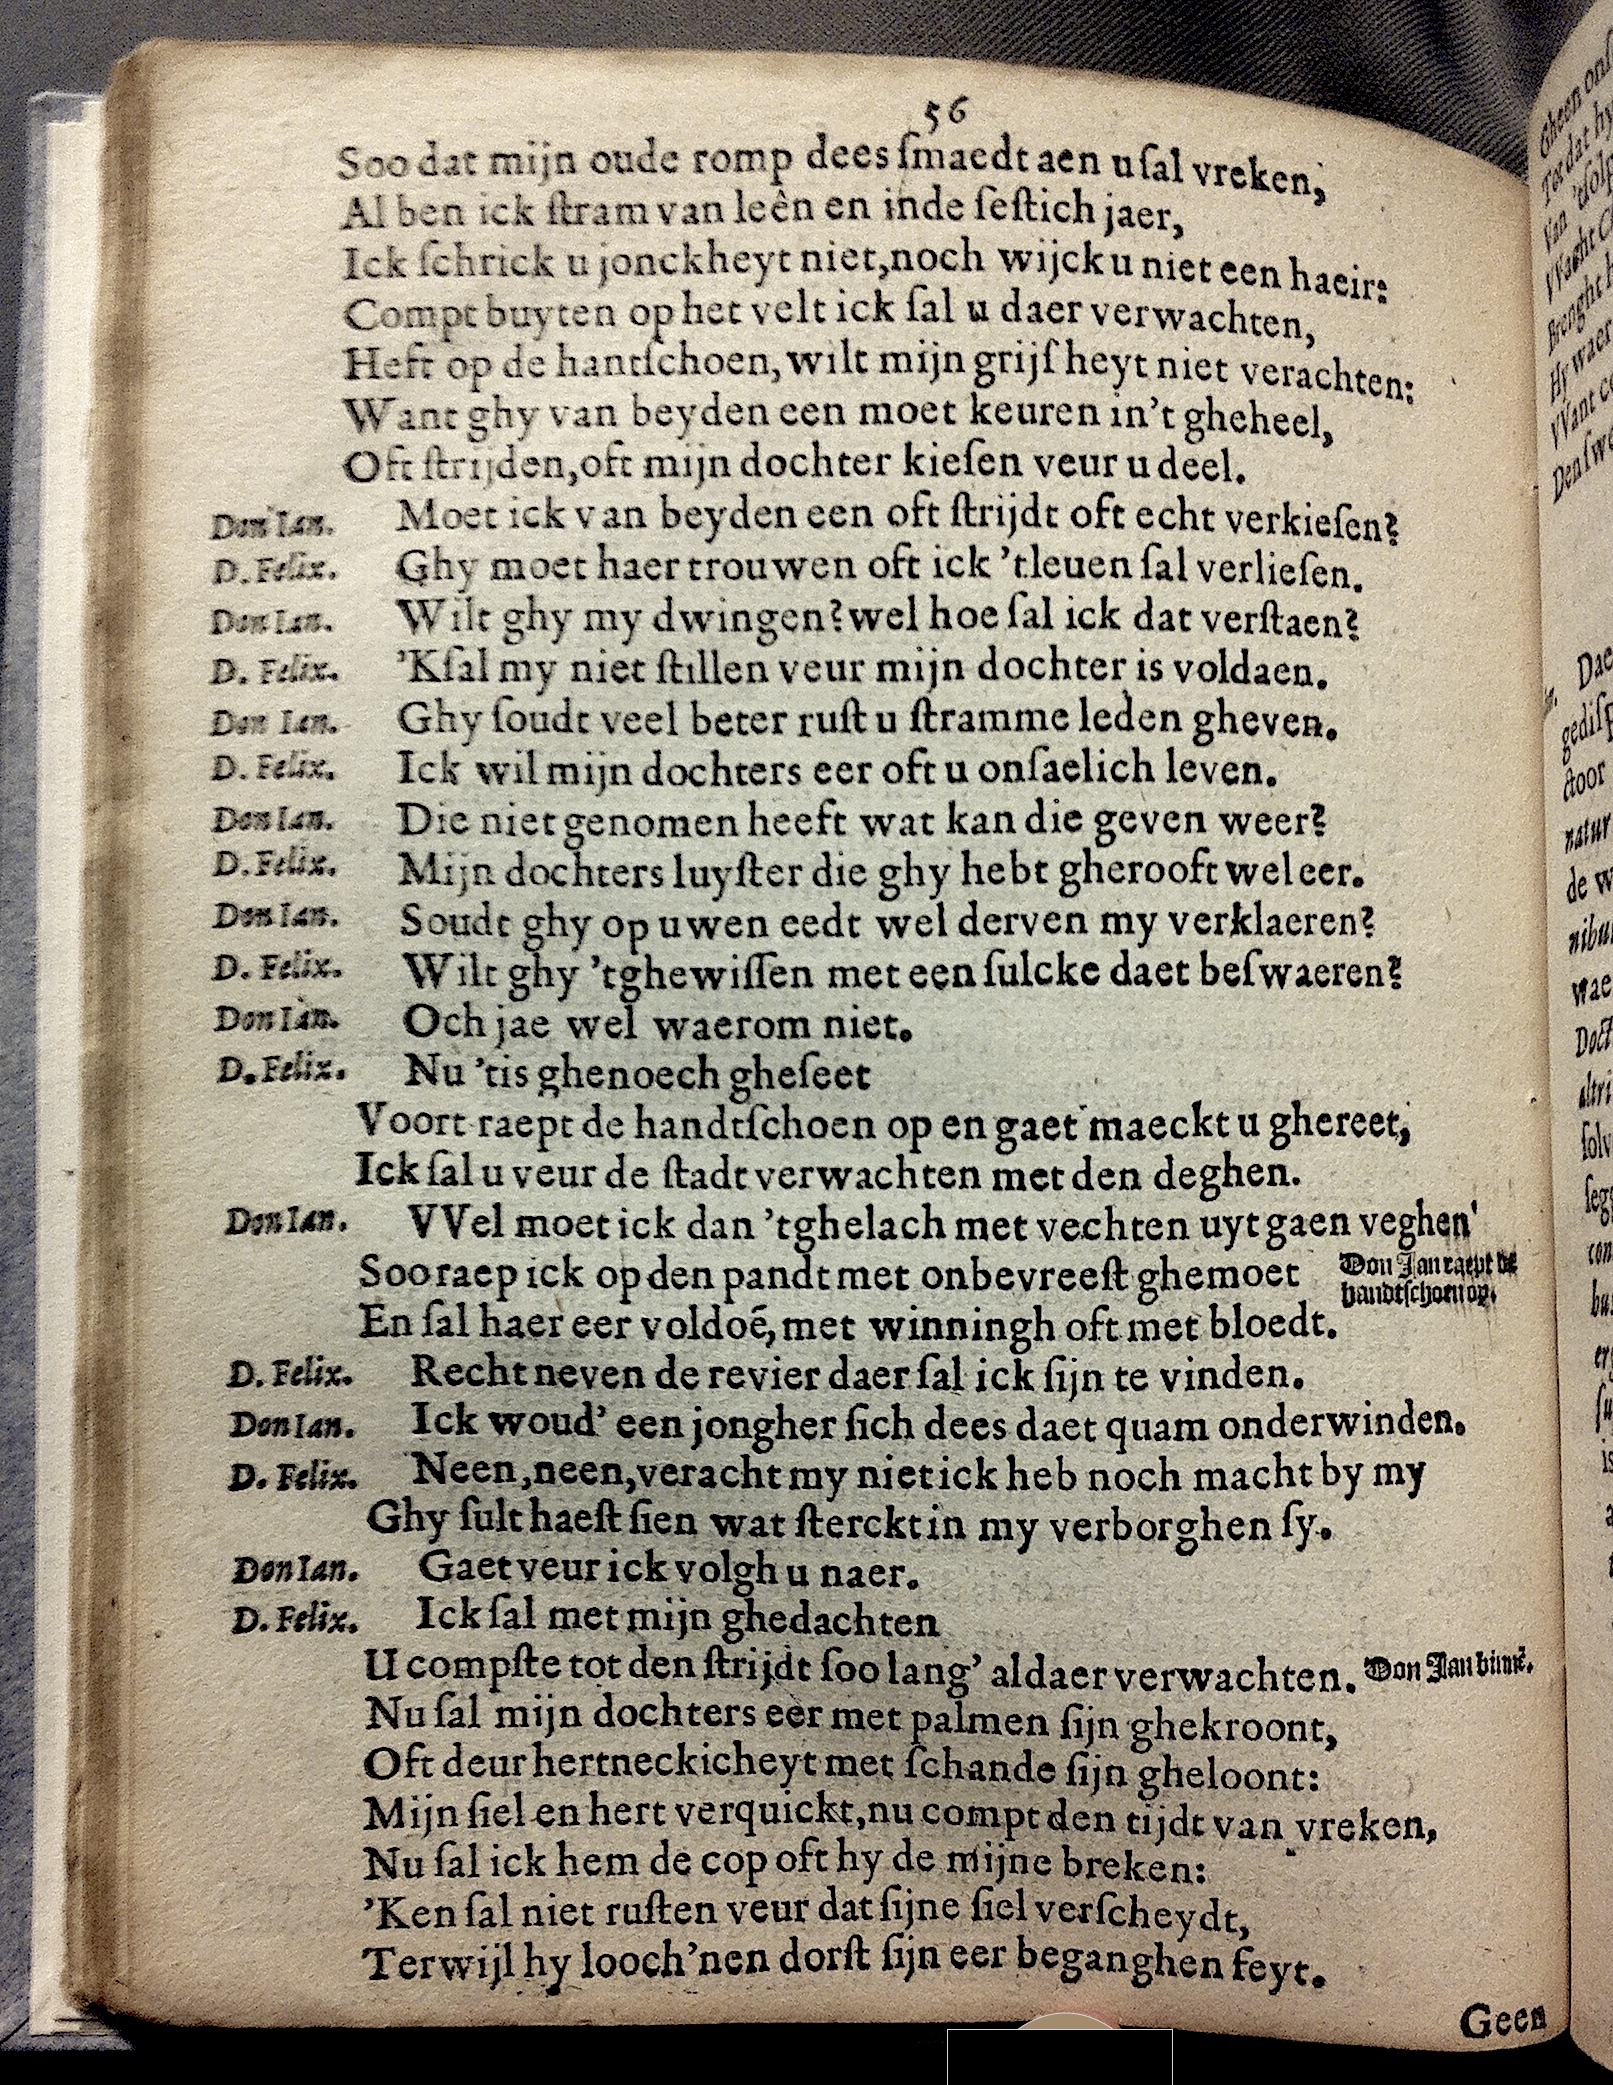 56
Soo dat mijn oude romp dees ſmaedt aen u ſal vreken,
Al ben ick ſtram van leên en inde ſeſtich jaer,
Ick ſchrick u jonckheyt niet, noch wijck u niet een haeir:
Compt buyten op het velt ick ſal u daer verwachten,
Heft op de hantſchoen, wilt mijn grijſheyt niet verachten:
Want ghy van beyden een moet keuren in't gheheel,
Oft ſtrijden, oft mijn dochter kieſen veur u deel.
Don Ian. Moet ick van beyden een oft ſtrijdt oft echt verkieſen?
D. Felix. Ghy moet haer trouwen oft ick 't leuen ſal verlieſen.
Don Ian. Wilt ghy my dwingen? wel hoe ſal ick dat verſtaen?
D. Felix. 'K ſal my niet ſtillen veur mijn dochter is voldaen.
Don Ian. Ghy ſoudt veel beter ruſt u ſtramme leden gheven.
D. Felix. Ick wil mijn dochters eer oft u onſaelich leven.
Don Ian. Die niet genomen heeft wat kan die geven weer?
D. Felix. Mijn dochters luyſter die ghy hebt gherooft wel eer.
Don Ian. Soudt ghy op uwen eedt wel derven my verklaeren?
D. Felix. Wilt ghy 't ghewiſſen met een ſulcke daet beſwaeren?
Don Ian. Och jae wel waerom niet.
D. Felix. Nu 'tis ghenoech gheſeet
Voort raept de handtſchoen op en gaet maeckt u ghereet,
Ick ſal u veur de ſtadt verwachten met den deghen.
Don Ian. VVel moet ick dan 't ghelach met vechten uyt gaen veghen'
Soo raep ick op den pandt met onbevreeſt ghemoet Don Jan raept de
handtſchoen op.
En ſal haer eer voldoē, met winningh oft met bloedt.
D. Felix. Recht neven de revier daer ſal ick ſijn te vinden.
Don Ian. Ick woud' een jongher ſich dees daet quam onderwinden.
D. Felix. Neen, neen, veracht my niet ick heb noch macht by my
Ghy ſult haeſt ſien wat ſterckt in my verborghen ſy.
Don Ian. Gaet veur ick volgh u naer.
D. Felix. Ick ſal met mijn ghedachten
U compſte tot den ſtrijdt ſoo lang' aldaer verwachten. Don Jan binnē.
Nu ſal mijn dochters eer met palmen ſijn ghekroont,
Oft deur hertneckicheyt met ſchande ſijn gheloont:
Mijn ſiel en hert verquickt, nu compt den tijdt van vreken,
Nu ſal ick hem de cop oft hy de mijne breken:
'Ken ſal niet ruſten veur dat ſijne ſiel verſcheydt,
Terwijl hy looch'nen dorſt ſijn eer beganghen feyt.
Geen